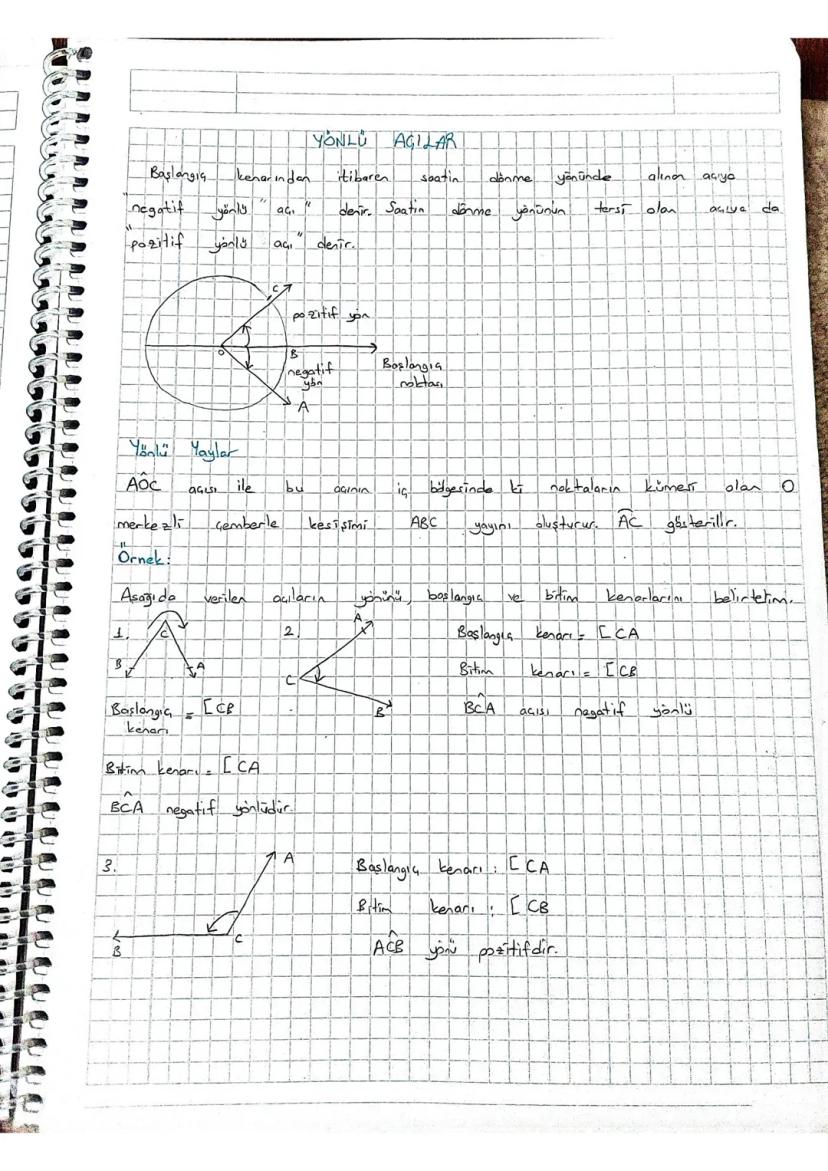 YÖNLÜ AÇILAR
Başlangıç kenarından itibaren saatin dönme yönünde alınan açıya
"negatif yönlü" açı" denir. Saatin dönme yönünün tersi olan açıya da
"pozitif yönlü açı" denir.
C
pozitif yön
O
B
negatif yön
Başlangıç noktası
A
Yönlü Yaylar
AÔC açısı ile bu açının iç bölgesinde ki noktaların kümesi olan O
merkezli çemberle kesişimi ABC yayını oluşturur. AC gösterilir.
Örnek:
Aşağıda verilen açıların yönünü, başlangıç ve bitim kenarlarını belirtelim.
1. C
B A
Başlangıç kenarı = [CB
Bitim kenarı = [CA
BĈA negatif yönlüdür.
2. A
C
B
Başlangıç kenarı = [CA
Bitim kenarı = [CB
BĈA açısı negatif yönlü
3. A
B C
Başlangıç kenarı : [CA
Bitim kenarı : [CB
AĈB yönü pozitifdir.